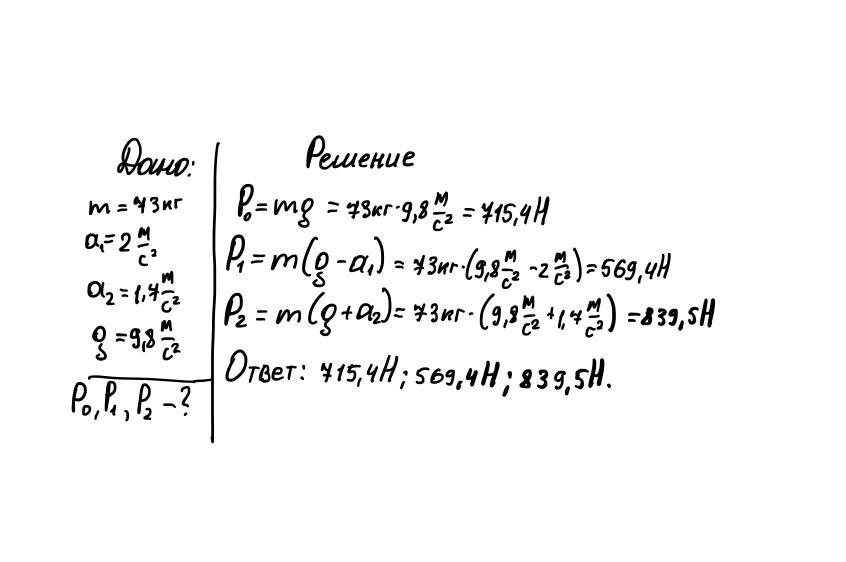 Дано:
m = 73кг
a₁ = 2 м/с²
a₂ = 1,7 м/с²
g = 9,8 м/с²
P₀, P₁, P₂ – ?
Решение
P₀ = mg = 73кг·9,8 м/с² = 715,4Н
P₁ = m(g - a₁) = 73кг·(9,8 м/с² - 2 м/с²) = 569,4Н
P₂ = m(g + a₂) = 73кг·(9,8 м/с² + 1,7 м/с²) = 839,5Н
Ответ: 715,4Н; 569,4Н; 839,5Н.